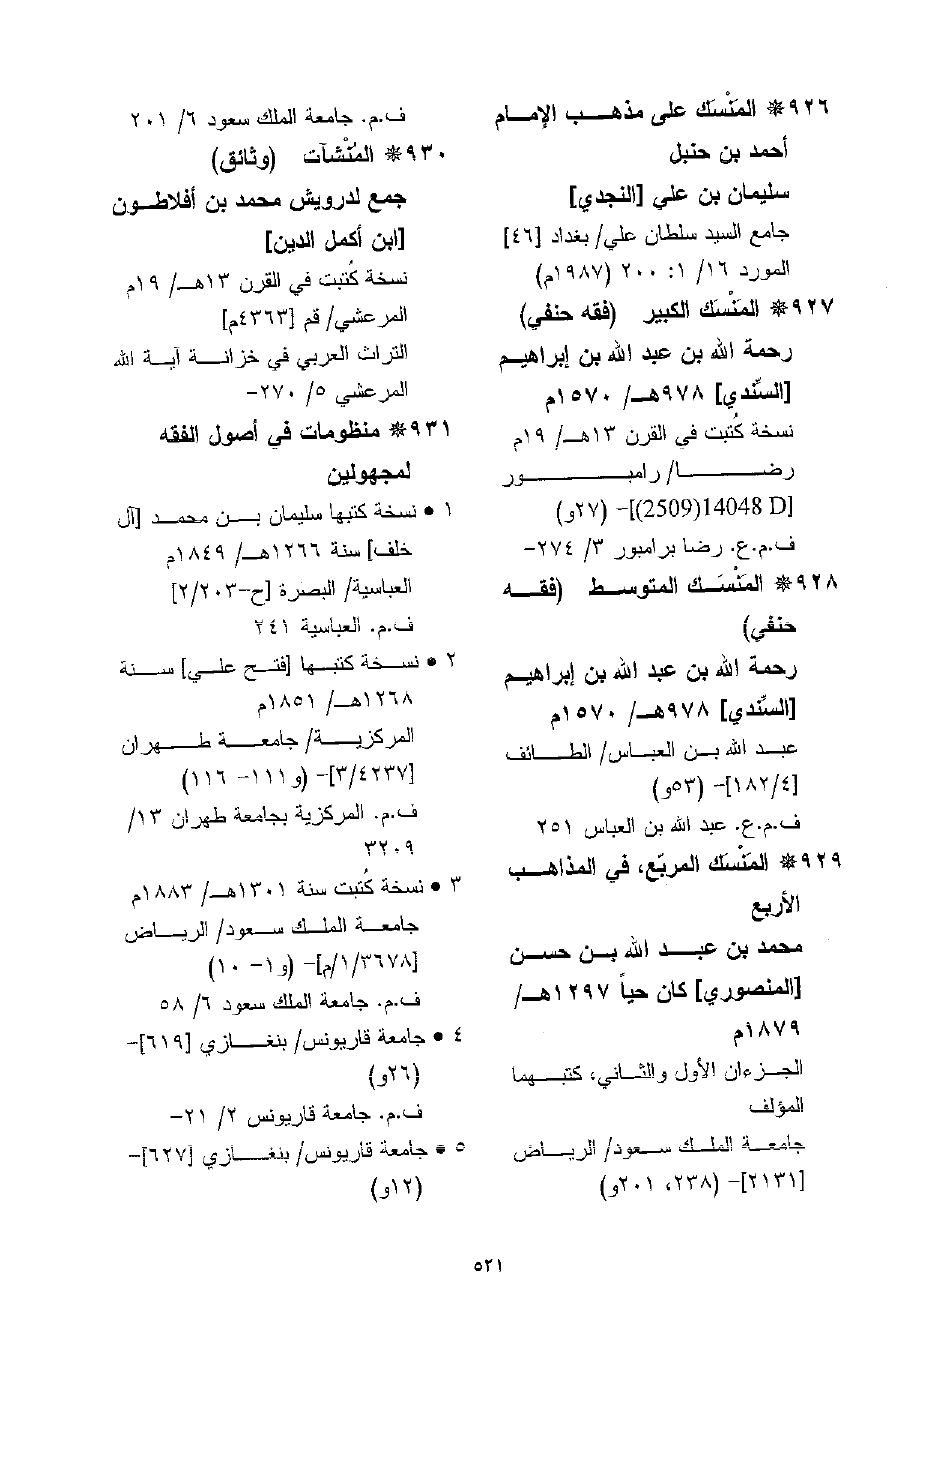 ٩٢٦* المَنْسَك على مذهب الإمام
أحمد بن حنبل
سليمان بن علي [النجدي]
جامع السيد سلطان علي/ بغداد [٤٦]
المورد ١٦/ ١: ٢٠٠ (١٩٨٧م)
٩٢٧* المَنْسَك الكبير (فقه حنفي)
رحمة الله بن عبد الله بن إبراهيم
[السِّندي] ٩٧٨هـ/ ١٥٧٠م
نسخة كُتبت في القرن ١٣هـ/ ١٩م
رضا/ رامبور
[2509)14048 D)]- (٢٧و)
ف.م.ع. رضا برامبور ٣/ ٢٧٤-
٩٢٨* المَنْسَك المتوسط (فقه
حنفي)
رحمة الله بن عبد الله بن إبراهيم
[السِّندي] ٩٧٨هـ/ ١٥٧٠م
عبد الله بن العباس/ الطائف
[١٨٢/٤]- (٥٣و)
ف.م.ع. عبد الله بن العباس ٢٥١
٩٢٩* المَنْسَك المربّع، في المذاهب
الأربع
محمد بن عبد الله بن حسن
[المنصوري] كان حياً ١٢٩٧هـ/
١٨٧٩م
الجزءان الأول والثاني، كتبهما
المؤلف
جامعة الملك سعود/ الرياض
[٢١٣١]- (٢٣٨، ٢٠١و)
ف.م. جامعة الملك سعود ٦/ ٢٠١
٩٣٠* المُنْشآت (وثائق)
جمع لدرويش محمد بن أفلاطون
[ابن أكمل الدين]
نسخة كُتبت في القرن ١٣هـ/ ١٩م
المرعشي/ قم [٤٣٦٣م]
التراث العربي في خزانة آية الله
المرعشي ٥/ ٢٧٠-
٩٣١* منظومات في أصول الفقه
لمجهولين
١ • نسخة كتبها سليمان بن محمد [آل
خلف] سنة ١٢٦٦هـ/ ١٨٤٩م
العباسية/ البصرة [ح-٢/٢٠٣]
ف.م. العباسية ٢٤١
٢ • نسخة كتبها [فتح علي] سنة
١٢٦٨هـ/ ١٨٥١م
المركزية/ جامعة طهران
[٣/٤٢٣٧]- (و١١١- ١١٦)
ف.م. المركزية بجامعة طهران ١٣/
٣٢٠٩
٣ • نسخة كُتبت سنة ١٣٠١هـ/ ١٨٨٣م
جامعة الملك سعود/ الرياض
[١/٣٦٧٨/م]- (و١- ١٠)
ف.م. جامعة الملك سعود ٦/ ٥٨
٤ • جامعة قاريونس/ بنغازي [٦١٩]-
(٢٦و)
ف.م. جامعة قاريونس ٢/ ٢١-
٥ • جامعة قاريونس/ بنغازي [٦٢٧]-
(١٢و)
٥٢١